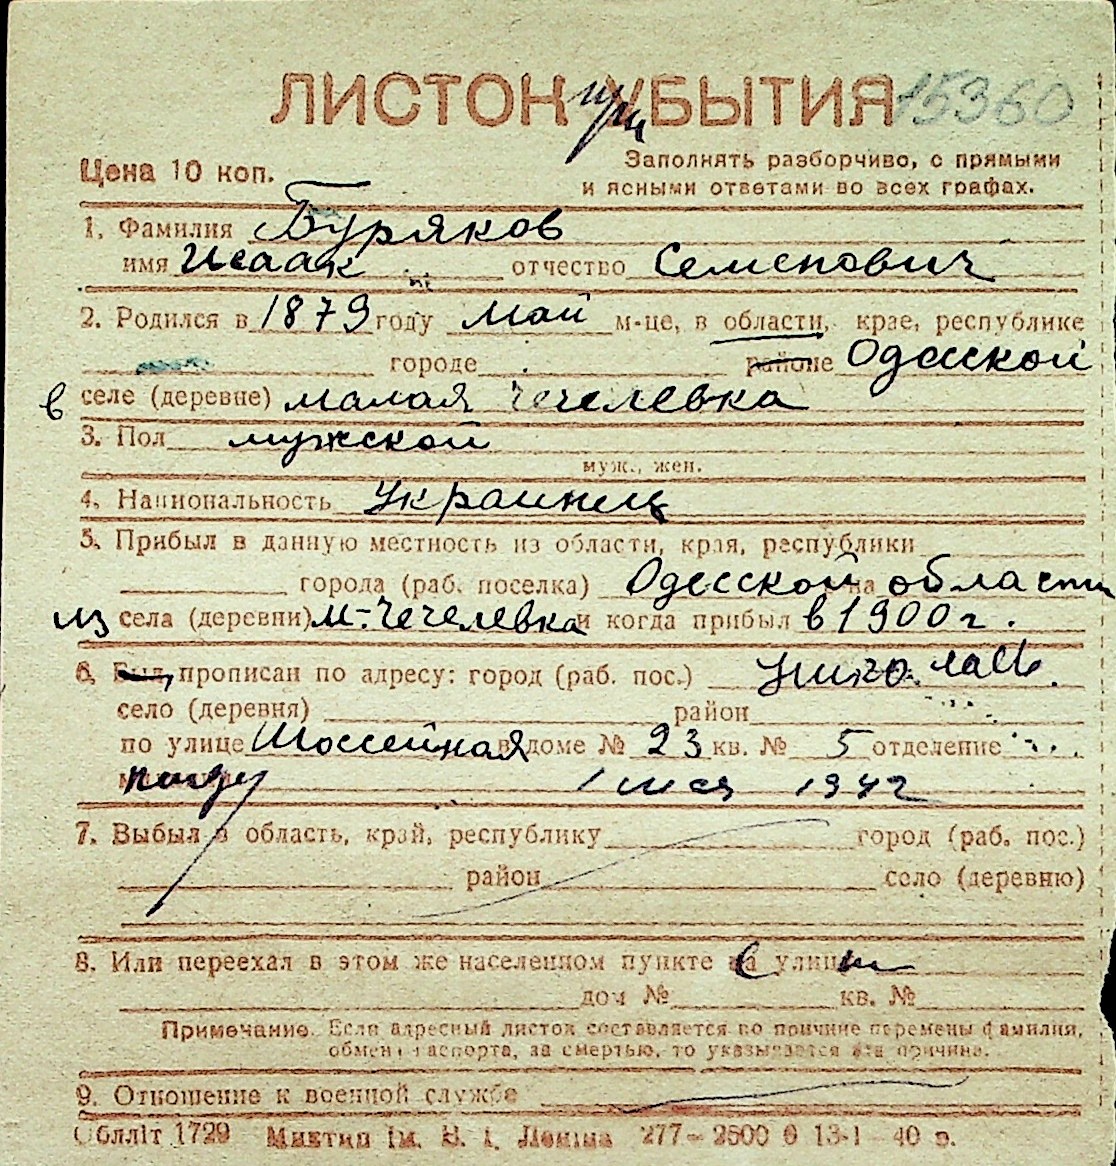 ЛИСТОК УБЫТИЯ 15360
при
Цена 10 коп.
Заполнять разборчиво, с прямыми
и ясными ответами во всех графах.
1. Фамилия Буряков
имя Исаак отчество Семенович
2. Родился в 1879 году май м-це, в области, крае, республике
городе районе Одесской
в селе (деревне) малая Чечелевка
3. Пол мужской
муж., жен.
4. Национальность Украинец
5. Прибыл в данную местность из области, края, республики
города (раб. поселка) Одесской на области
из села (деревни) М-Чечелевка и когда прибыл в 1900 г.
6. Был прописан по адресу: город (раб. пос.)
село (деревня) район
по улице Шоссейная в доме № 23 кв. № 5 отделение
1 мая 1942
7. Выбыл в область, край, республику город (раб. пос.)
район село (деревню)
8. Или переехал в этом же населенном пункте на улицу
дом № кв. №
Примечание. Если адресный листок составляется по причине перемены фамилии,
обмен паспорта, за смертью, то указывается эта причина.
9. Отношение к военной службе
Облліт 1729 Миктип ім. В. І. Леніна 277—2500 б 13-1—40 р.